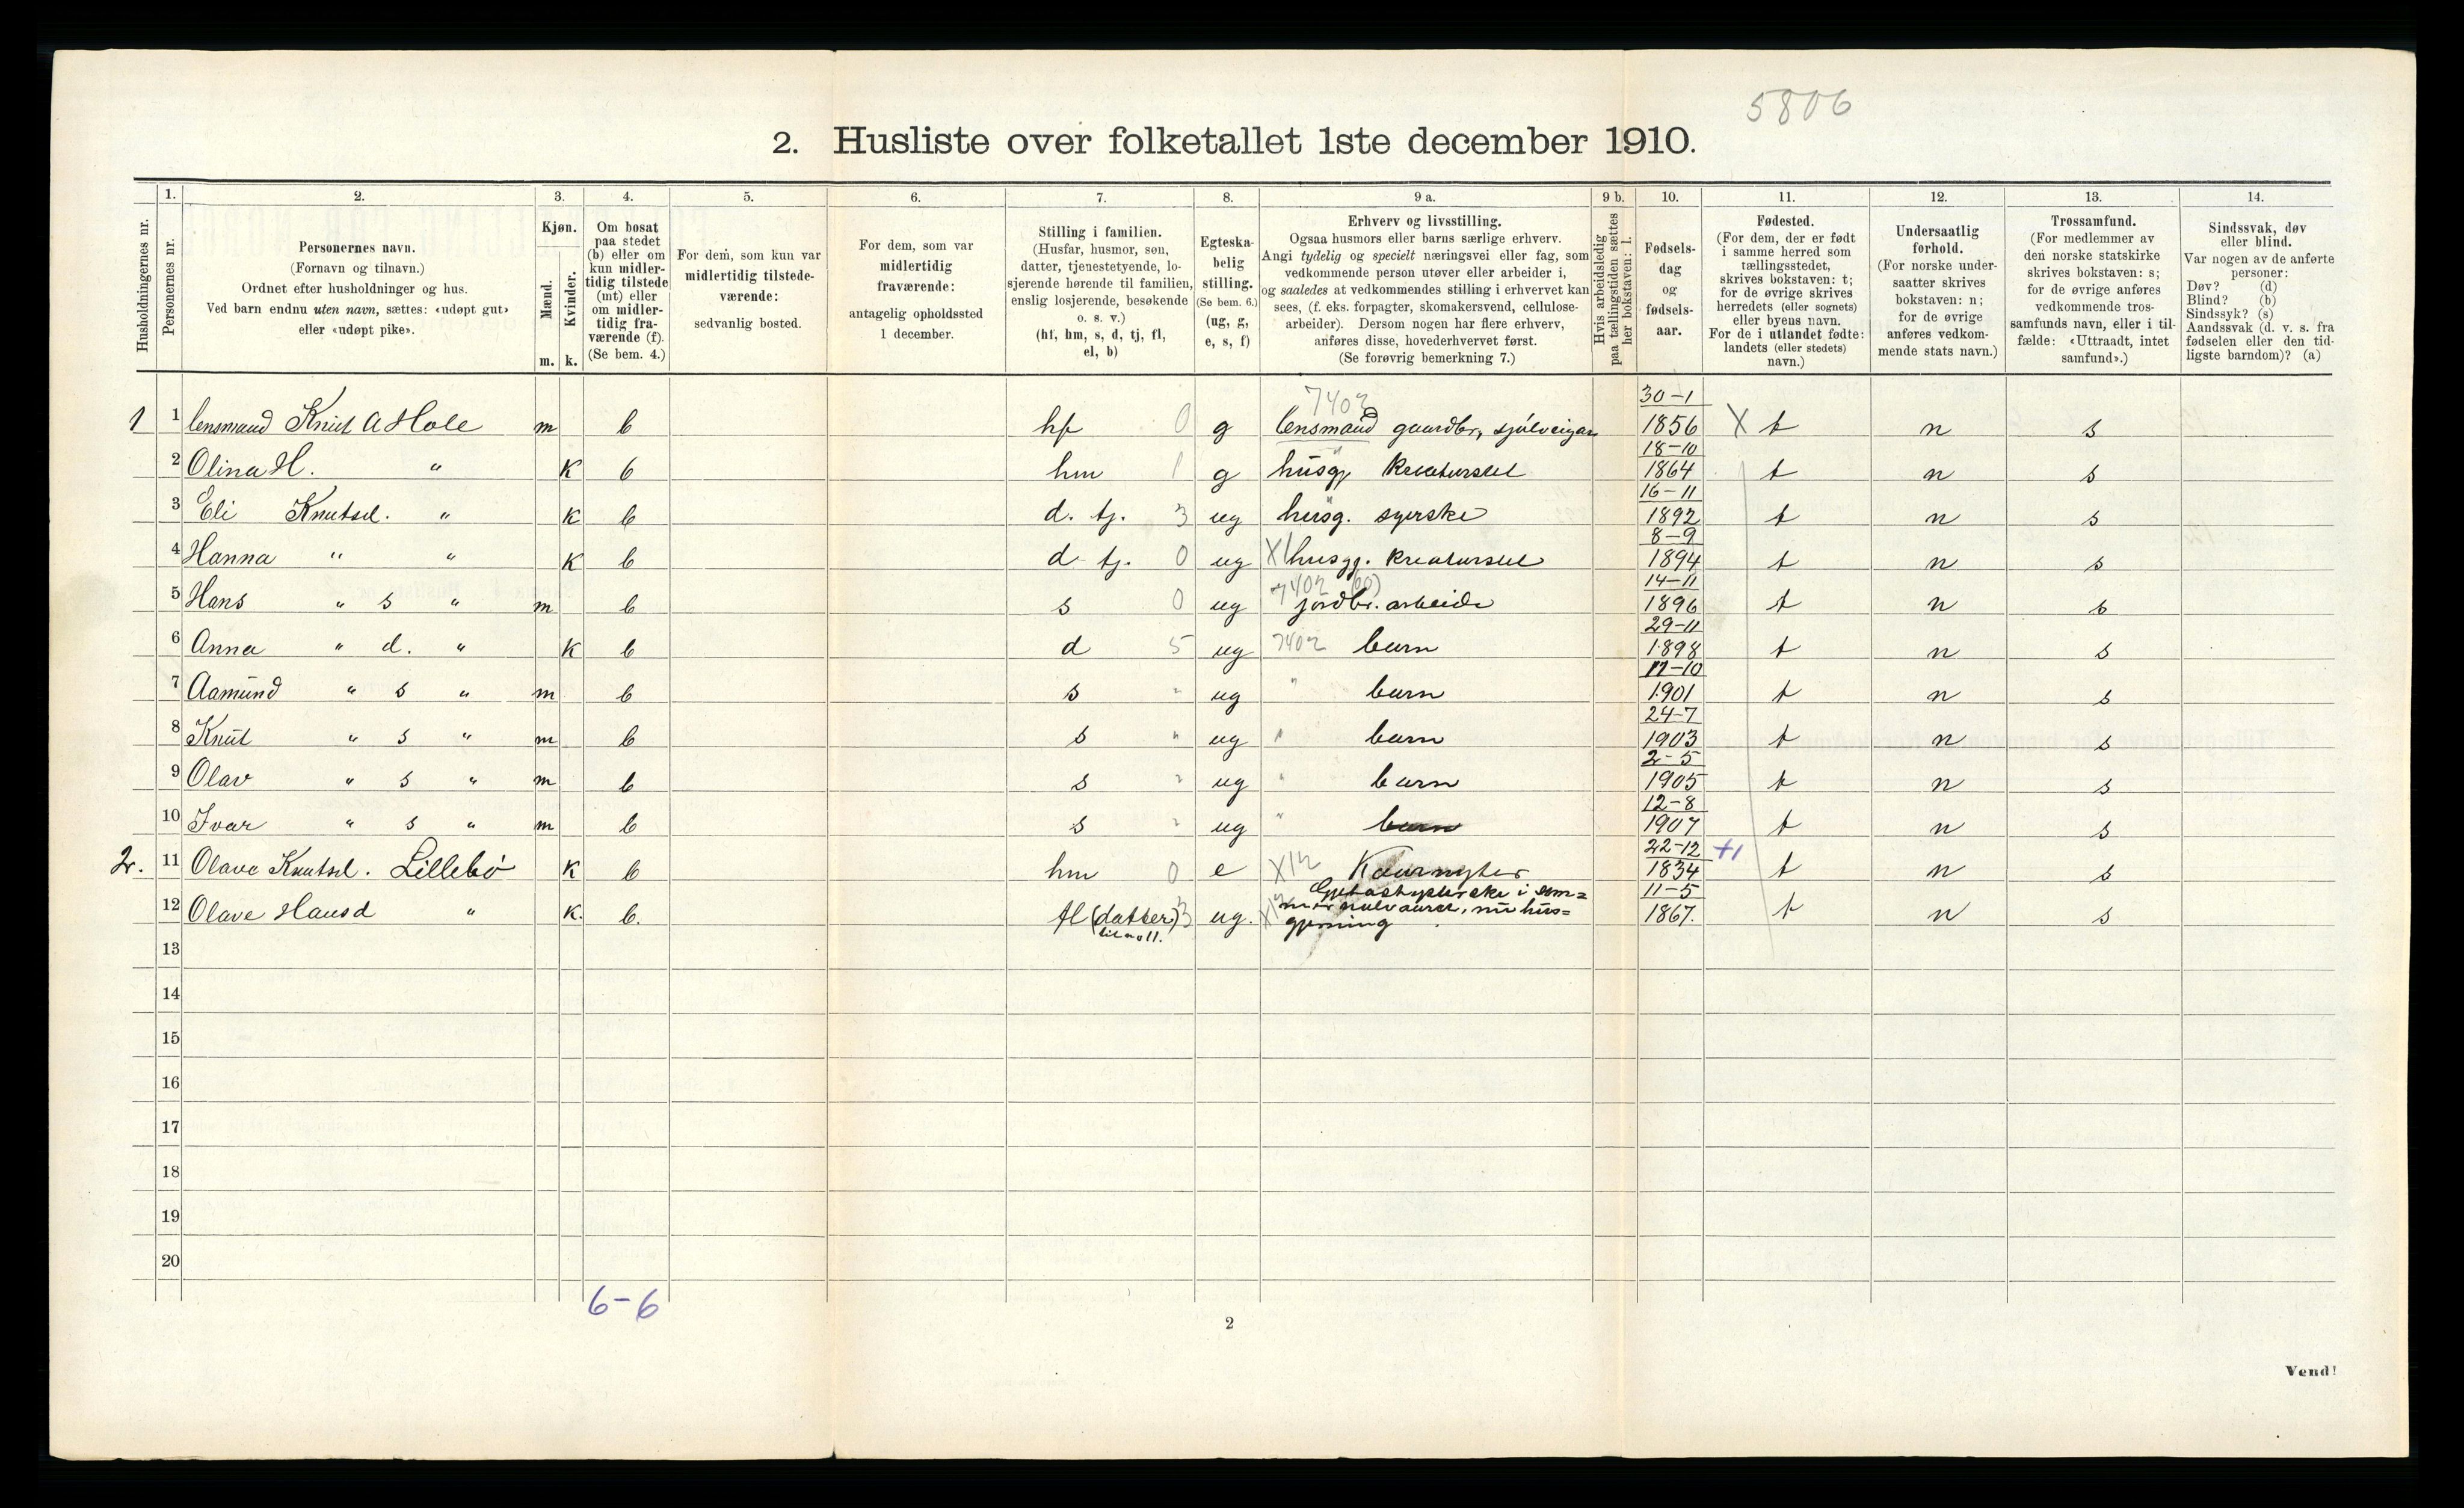 5806
2. Husliste over folketallet 1ste december 1910.
Husholdningernes nr.
1. Personernes nr.
2. Personernes navn. (Fornavn og tilnavn.) Ordnet efter husholdninger og hus. Ved barn endnu uten navn, sættes: «udøpt gut» eller «udøpt pike».
3. Kjøn. Mænd. m. Kvinder. k.
4. Om bosat paa stedet (b) eller om kun midlertidig tilstede (mt) eller om midlertidig fraværende (f). (Se bem. 4.)
5. For dem, som kun var midlertidig tilstedeværende: sedvanlig bosted.
6. For dem, som var midlertidig fraværende: antagelig opholdssted 1 december.
7. Stilling i familien. (Husfar, husmor, søn, datter, tjenestetyende, losjerende hørende til familien, enslig losjerende, besøkende o. s. v.) (hf, hm, s, d, tj, fl, el, b)
8. Egteskabelig stilling. (Se bem. 6.) (ug, g, e, s, f)
9 a. Erhverv og livsstilling. Ogsaa husmors eller barns særlige erhverv. Angi tydelig og specielt næringsvei eller fag, som vedkommende person utøver eller arbeider i, og saaledes at vedkommendes stilling i erhvervet kan sees, (f. eks. forpagter, skomakersvend, cellulosearbeider). Dersom nogen har flere erhverv, anføres disse, hovederhvervet først. (Se forøvrig bemerkning 7.)
9 b. Hvis arbeidsledig paa tællingstiden sættes her bokstaven: l.
10. Fødselsdag og fødselsaar.
11. Fødested. (For dem, der er født i samme herred som tællingsstedet, skrives bokstaven: t; for de øvrige skrives herredets (eller sognets) eller byens navn. For de i utlandet fødte: landets (eller stedets) navn.)
12. Undersaatlig forhold. (For norske undersaatter skrives bokstaven: n; for de øvrige anføres vedkommende stats navn.)
13. Trossamfund. (For medlemmer av den norske statskirke skrives bokstaven: s; for de øvrige anføres vedkommende trossamfunds navn, eller i tilfælde: «Uttraadt, intet samfund».)
14. Sindssvak, døv eller blind. Var nogen av de anførte personer: Døv? (d) Blind? (b) Sindssyk? (s) Aandssvak (d. v. s. fra fødselen eller den tidligste barndom)? (a)
1 1 lensmand Knut A Hole m b hf 0 g 7402 lensmand gaardbr, sjølveigar 30-1 1856 X t n s
2 Olina H. " K b hm 1 g " husgj kreaturstel 18-10 1864 t n s
3 Eli Knutsd. " K b d. tj. 3 ug " husg. syerske 16-11 1892 t n s
4 Hanna " " K b d tj. 0 ug X1 husgj. kreaturstel 8-9 1894 t n s
5 Hans " s " m b s 0 ug 7402 (00) jordbr. arbeide 14-11 1896 t n s
6 Anna " d. " K b d 5 ug 7402 barn 29-11 1898 t n s
7 Aamund " s " m b s " ug " barn 17-10 1901 t n s
8 Knut " s " m b s " ug " barn 24-7 1903 t n s
9 Olav " s " m b s " ug " barn 2-5 1905 t n s
10 Ivar " s " m b s " ug " barn 12-8 1907 t n s
2. 11 Olave Knutsd. Lillebø K b hm 0 e X12 Kaarnyter 22-12 1834 +1 t n s
12 Olave Hansd " K. b. fl (datter) 3 til no 11. ug. i som= nu hus= gjerning 11-5 1867. t n s
13
14
15
16
17
18
19
20
6-6
2
Vend!